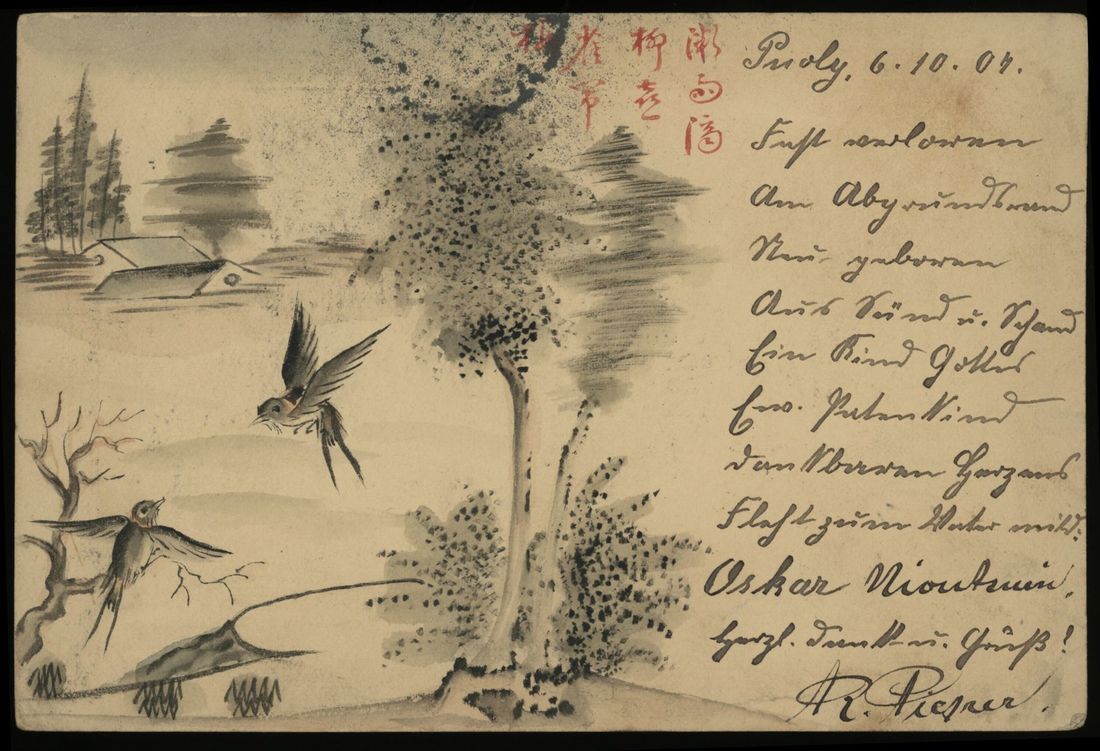 Puoly, 6.10.04.
Fast verloren
Am Abgrundsrand
Neu-geboren
Aus Sünd u. Schand
Ein Kind Gottes
Ew. Patenkind
dankbaren Herzens
Fleht zum Vater mild:
Oskar
Herzl. Dank u. Grüß!
R. Pieper.
雨滴
柳
雀